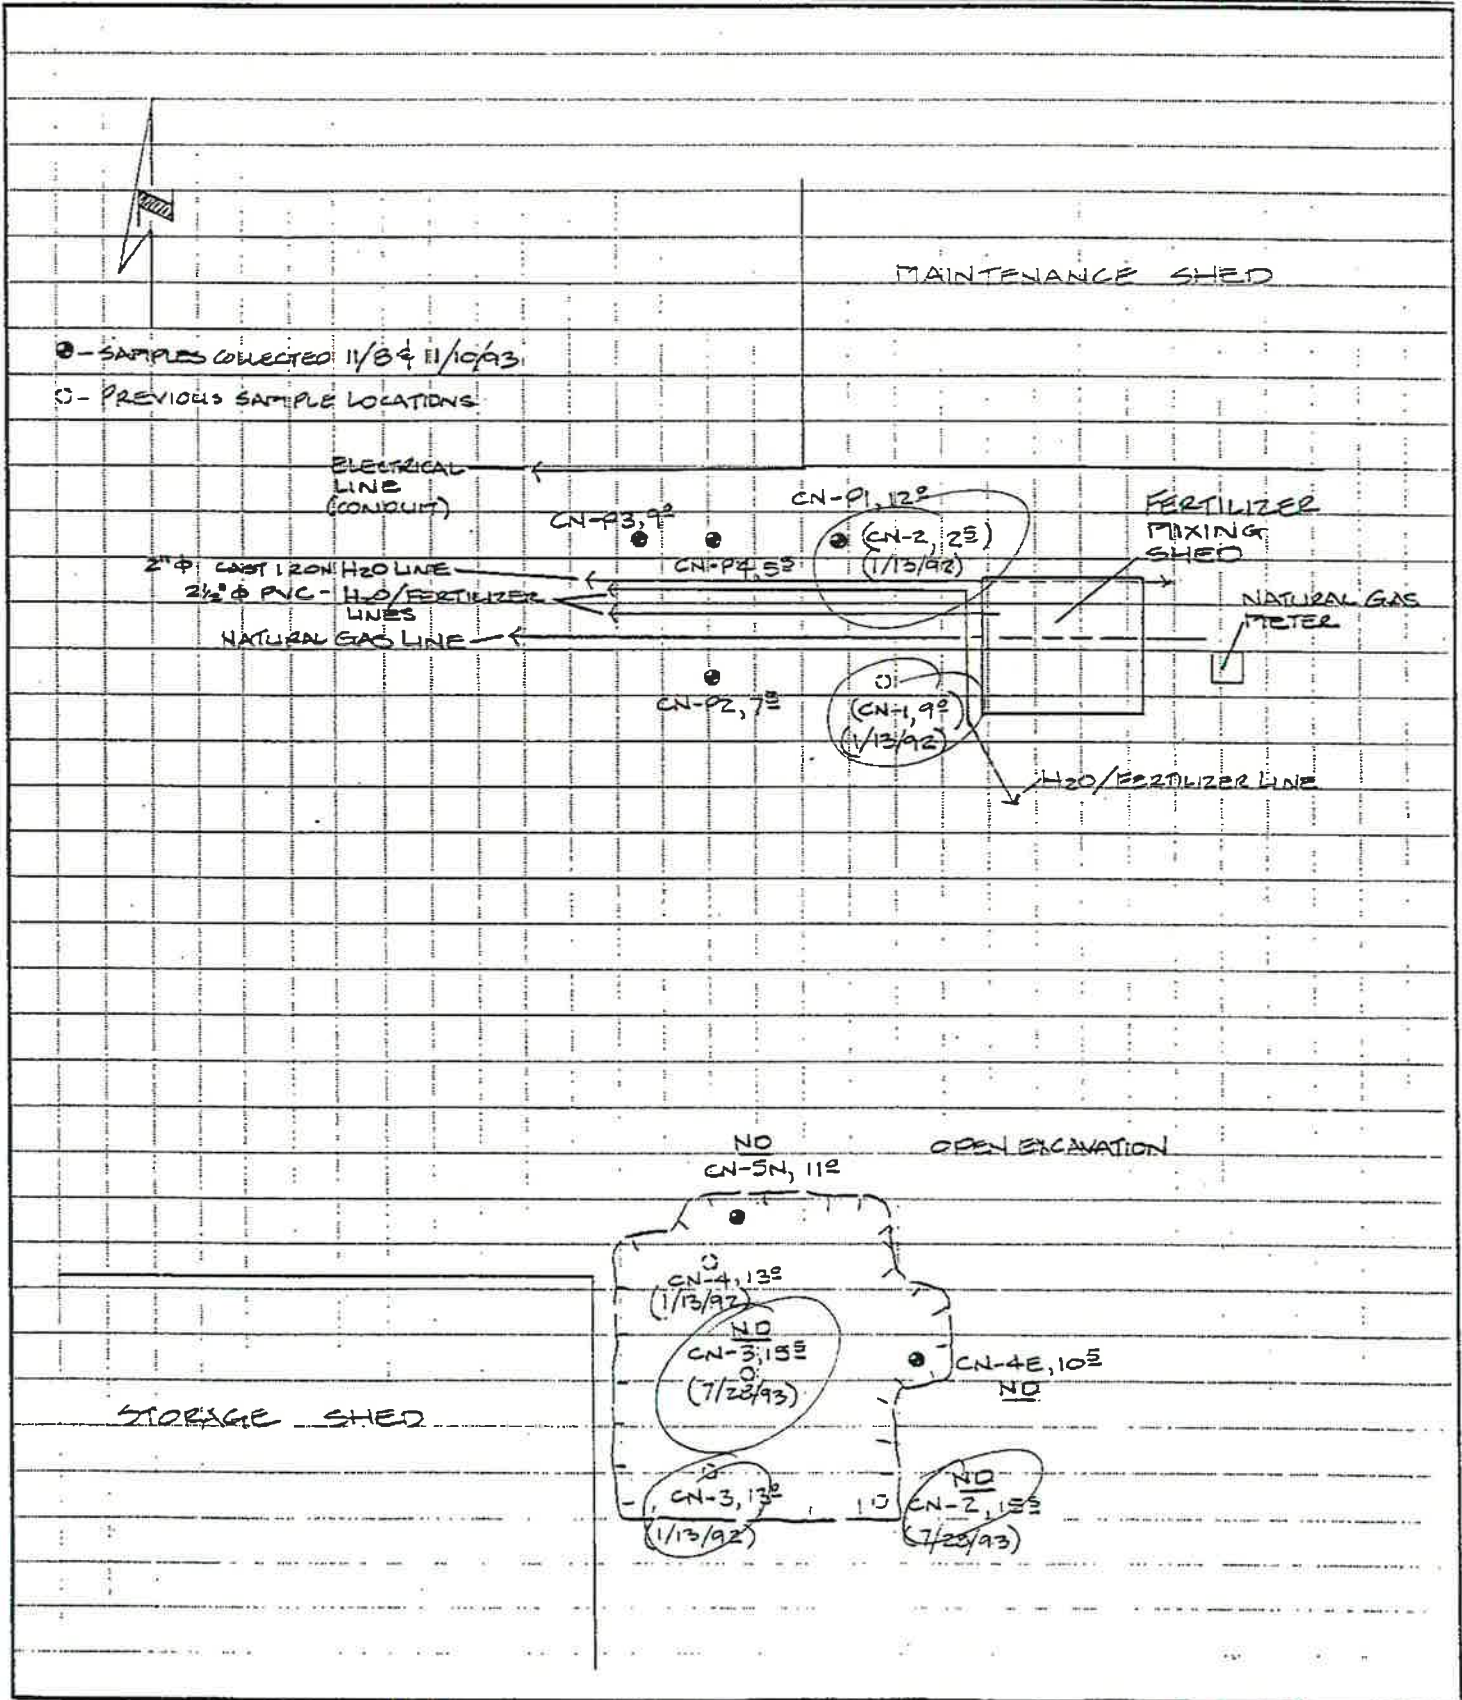 MAINTENANCE SHED
- SAMPLES COLLECTED 11/8 & 11/10/93
- PREVIOUS SAMPLE LOCATIONS
ELECTRICAL
LINE
(CONDUIT)
CN-P1, 12⁰
CN-P3, 9⁰
(CN-2, 2⁵)
(1/13/92)
CN-P4, 5⁵
FERTILIZER
MIXING
SHED
2"Φ CAST IRON H2O LINE
2½"Φ PVC - H2O/FERTILIZER
LINES
NATURAL GAS LINE
NATURAL GAS
METER
CN-P2, 7⁵
(CN-1, 9⁰)
(1/13/92)
H2O/FERTILIZER LINE
ND
CN-5N, 11⁰
OPEN EXCAVATION
CN-4, 13⁰
(1/13/92)
ND
CN-3, 15⁵
(7/28/93)
CN-4E, 10⁵
ND
STORAGE SHED
CN-3, 13⁰
(1/13/92)
ND
CN-2, 15⁵
(7/28/93)